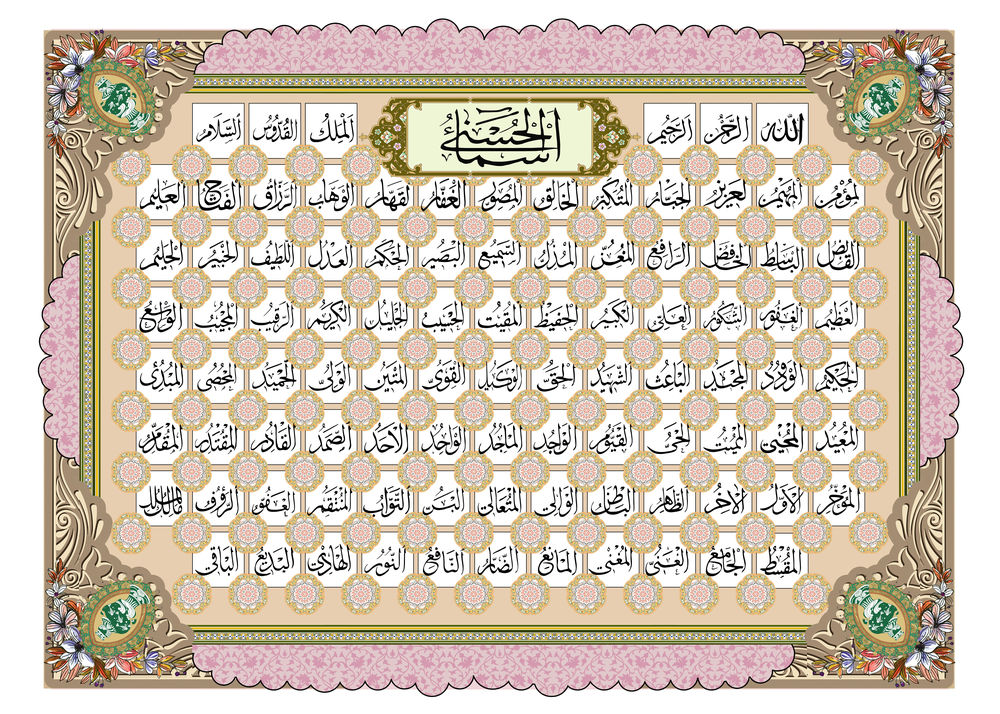 اسمائ الحسنى
الله الرحمن الرحيم الملك القدوس السلام
لمؤمن المهيمن لعزيز الجبار المتكبر الخالق المصور الغفار لقهار الوهاب الرزاق الفتاح العليم
القابض الباسط الخافض الرافع المعز المذل السميع البصير الحكم العدل اللطيف الخبير الحليم
العظيم الغفور الشكور العلى الكبير الحفيظ المقيت الحسيب الجليل الكريم الرقيب المجيب الواسع
الحكيم الودود المجيد الباعث الشهيد الحق الوكيل القوى المتين الولى الحميد المحصى المبدئ
المعيد المحيى المميت الحى القيوم الواجد الماجد الواحد الاحد الصمد القادر المقتدر المقدم
المؤخر الاول الاخر الظاهر الباطن الوالى المتعالى البر التواب المنتقم العفو الرؤف مالك الملك
المقسط الجامع الغنى المغنى المانع الضار النافع النور الهادى البديع الباقى